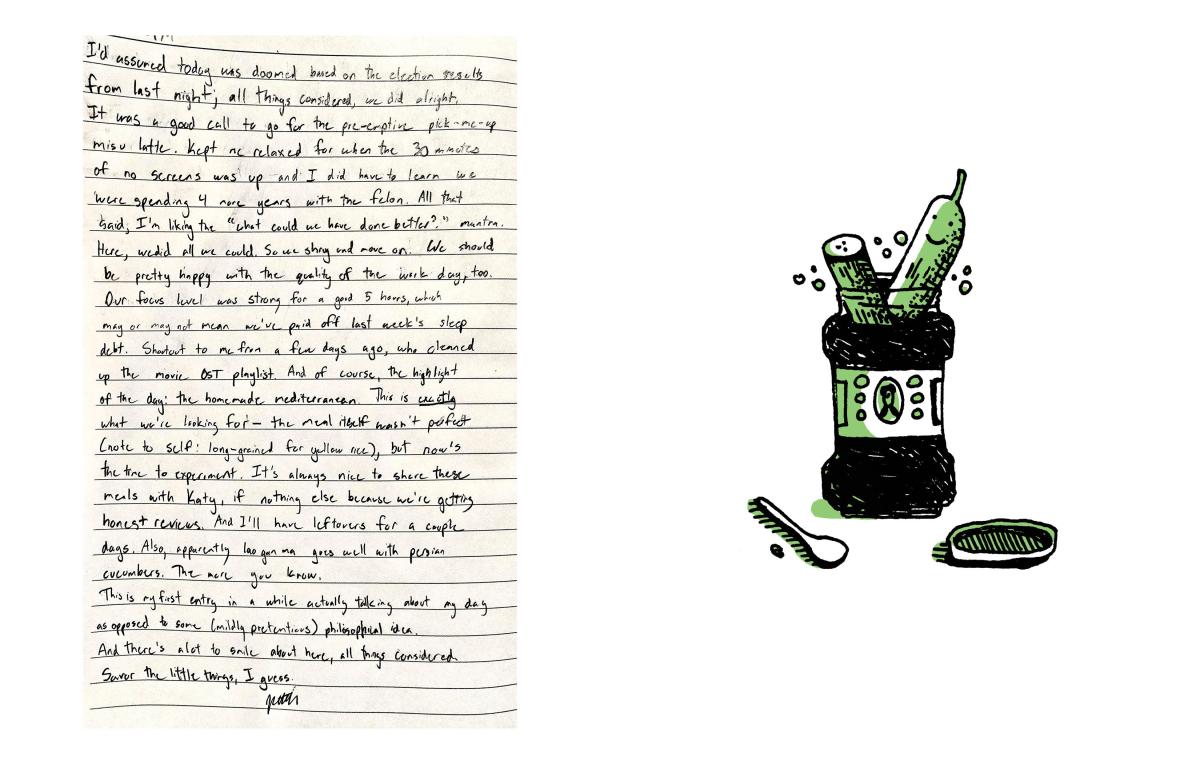 I'd assumed today was doomed based on the election results
from last night; all things considered, we did alright.
It was a good call to go for the pre-emptive pick-me-up
misu latte. Kept me relaxed for when the 30 minutes
of no screens was up and I did have to learn we
were spending 4 more years with the felon. All that
said, I'm liking the "what could we have done better?" mantra.
Here, we did all we could. So we shrug and move on. We should
be pretty happy with the quality of the work day, too.
Our focus level was strong for a good 5 hours, which
may or may not mean we've paid off last week's sleep
debt. Shoutout to me from a few days ago, who cleaned
up the movie OST playlist. And of course, the highlight
of the day: the homemade mediterranean. This is exactly
what we're looking for - the meal itself wasn't perfect
(note to self: long-grained for yellow rice), but now's
the time to experiment. It's always nice to share these
meals with Katy, if nothing else because we're getting
honest reviews. And I'll have leftovers for a couple
days. Also, apparently lao gan ma goes well with persian
cucumbers. The more you know.
This is my first entry in a while actually talking about my day
as opposed to some (mildly pretentious) philosophical idea.
And there's alot to smile about here, all things considered.
Savor the little things, I guess.